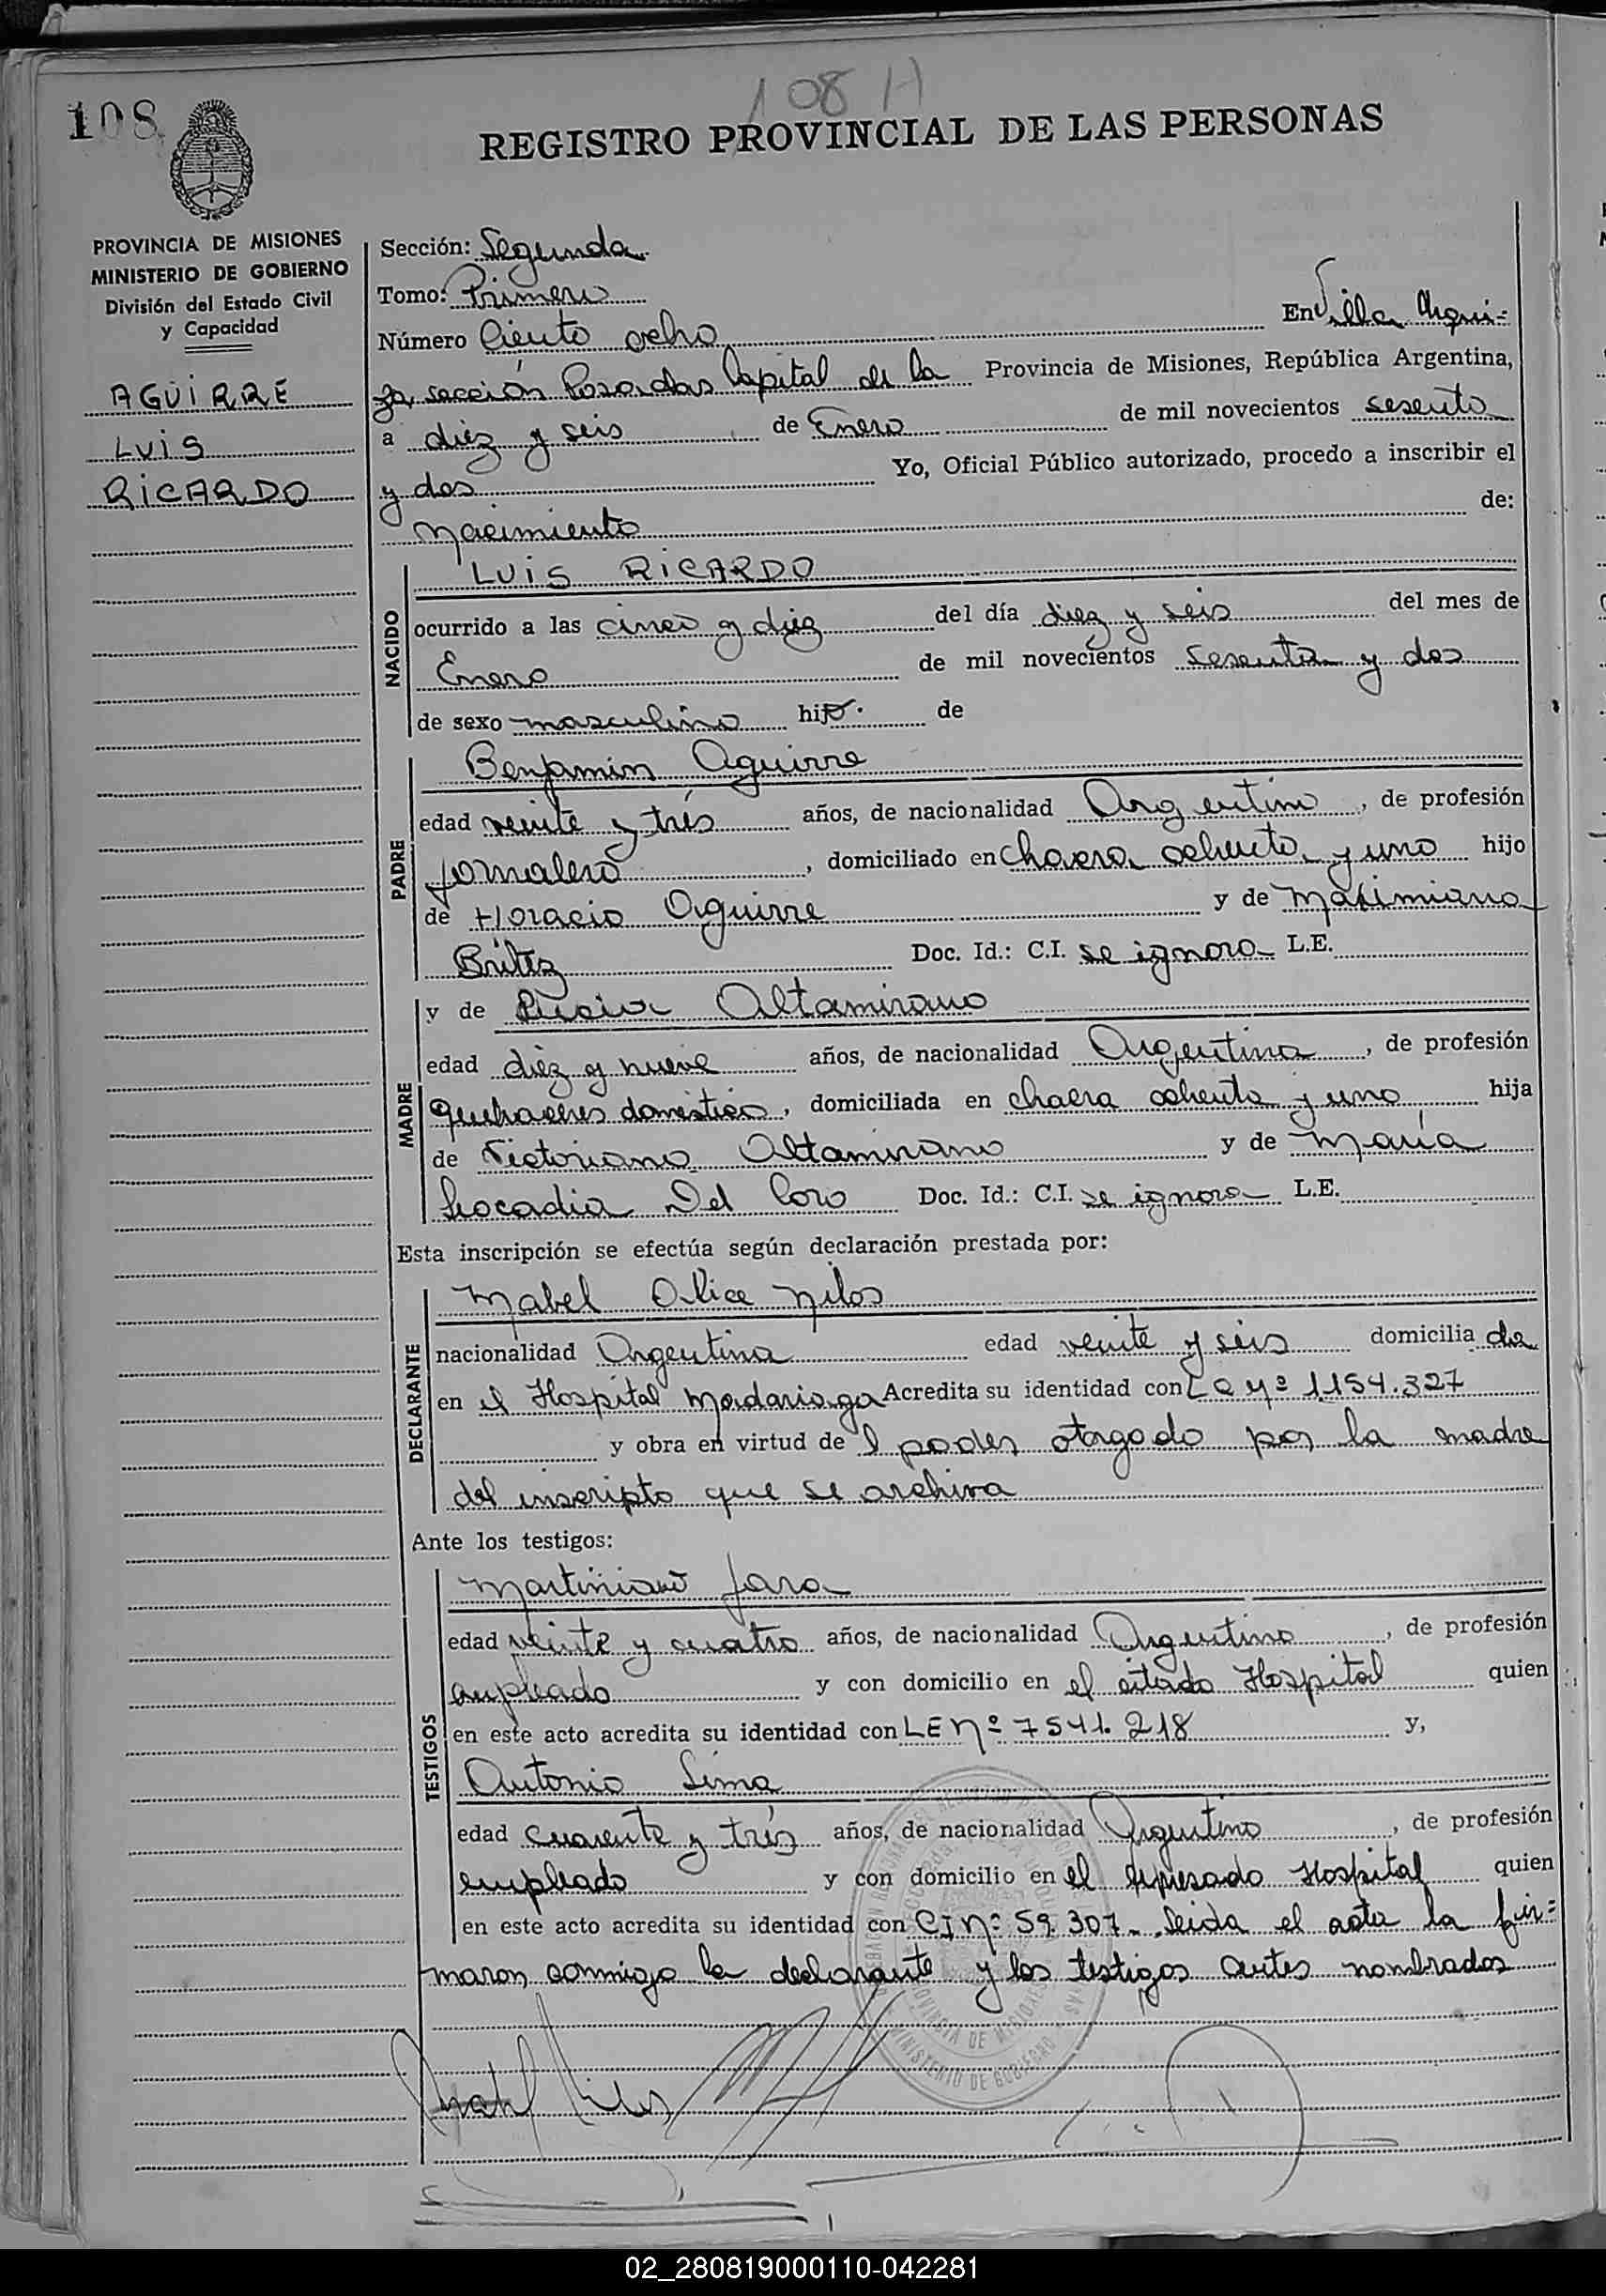 108 H
108
REGISTRO PROVINCIAL DE LAS PERSONAS
PROVINCIA DE MISIONES
MINISTERIO DE GOBIERNO
División del Estado Civil
y Capacidad
AGUIRRE
LUIS
RICARDO
Sección: Segunda
Tomo: Primero
Número Ciento ocho En Villa Urqui=
za sección Posadas Capital de la Provincia de Misiones, República Argentina,
a diez y seis de Enero de mil novecientos sesenta
y dos Yo, Oficial Público autorizado, procedo a inscribir el
Nacimiento de:
NACIDO
LUIS RICARDO
ocurrido a las cinco y diez del día diez y seis del mes de
Enero de mil novecientos sesenta y dos
de sexo masculino hijo de
PADRE
Benjamin Aguirre
edad veinte y tres años, de nacionalidad Argentino, de profesión
jornalero, domiciliado en chacra ochenta y uno hijo
de Horacio Aguirre y de Maximiana
Britez Doc. Id.: C.I. se ignora L.E.
MADRE
y de Altamirano
edad diez y nueve años, de nacionalidad Argentina, de profesión
quehaceres domésticos, domiciliada en chacra ochenta y uno hija
de Victoriano Altamirano y de María
Leocadia Del Coro Doc. Id.: C.I. se ignora L.E.
Esta inscripción se efectúa según declaración prestada por:
DECLARANTE
Mabel Alice Nilos
nacionalidad Argentina edad veinte y seis domicilia da
en el Hospital Madariaga Acredita su identidad con L C Nº 1154.327
y obra en virtud de l poder otorgado por la madre
del inscripto que se archiva
Ante los testigos:
TESTIGOS
Martiniano Jara
edad veinte y cuatro años, de nacionalidad Argentino, de profesión
empleado y con domicilio en el citado Hospital quien
en este acto acredita su identidad con LE Nº 7541.218 y,
Antonio Lima
edad cuarenta y tres años, de nacionalidad Argentino, de profesión
empleado y con domicilio en el expresado Hospital quien
en este acto acredita su identidad con CI Nº 59.307. Leida el acta la fir=
maron conmigo la declarante y los testigos antes nombrados
PROVINCIA DE MISIONES
MINISTERIO DE GOBIERNO
02_280819000110-042281